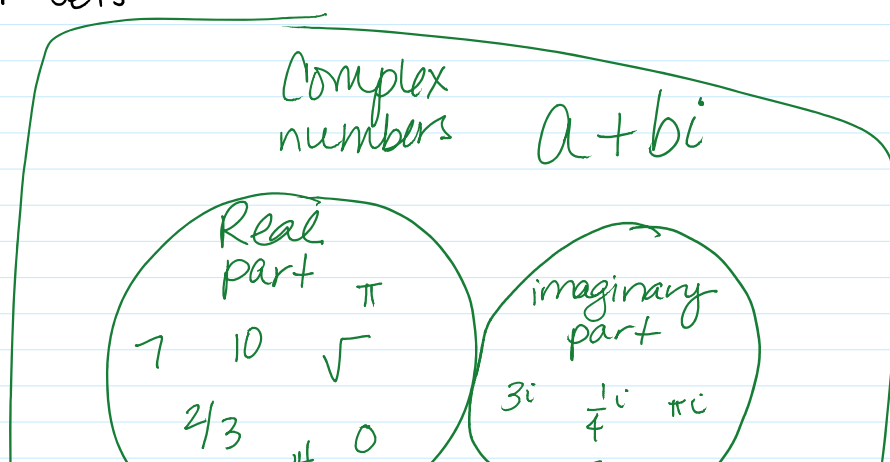 Complex
numbers
a+bi
Real
part
π
7 10 √
2/3 0
imaginary
part
3i 1/4 i πi